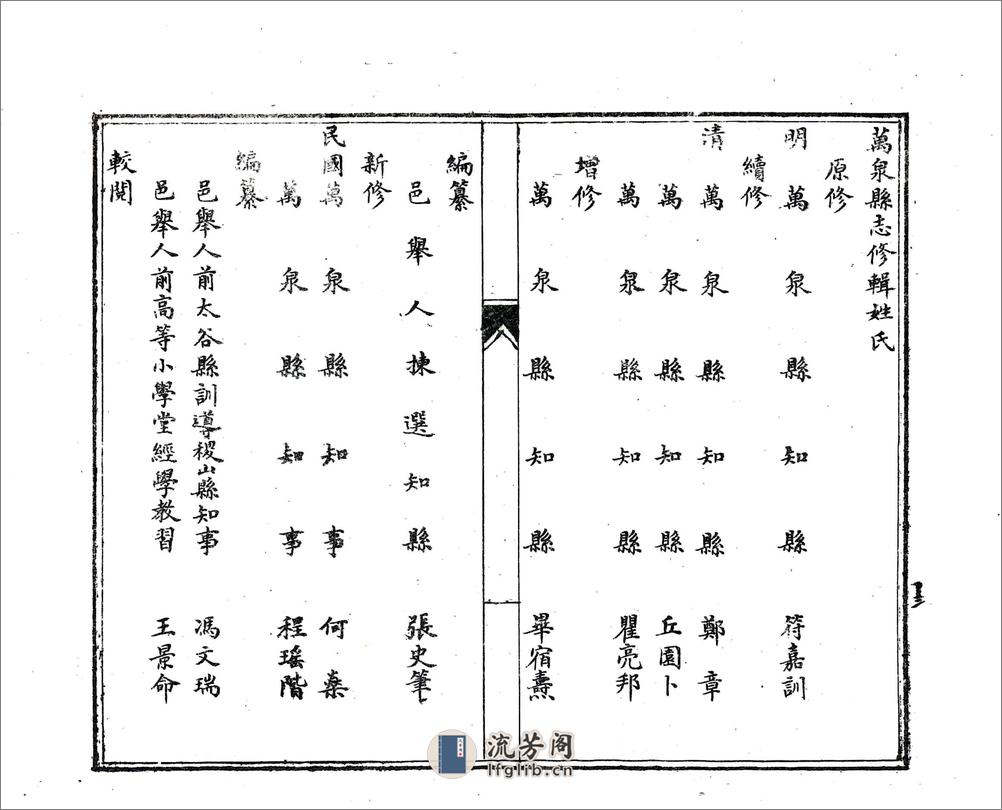 萬泉縣志修輯姓氏
原修
明 萬泉縣知縣 符嘉訓
續修
清 萬泉縣知縣 鄭章
萬泉縣知縣 丘園卜
萬泉縣知縣 瞿亮邦
增修
萬泉縣知縣 畢宿燾
編纂
邑舉人揀選知縣 張史筆
新修
民國萬泉縣知事 何燊
萬泉縣知事 程瑤階
編纂
邑舉人前太谷縣訓導稷山縣知事 馮文瑞
邑舉人前高等小學堂經學教習 王景命
較閱
流芳阁
lfglib.cn